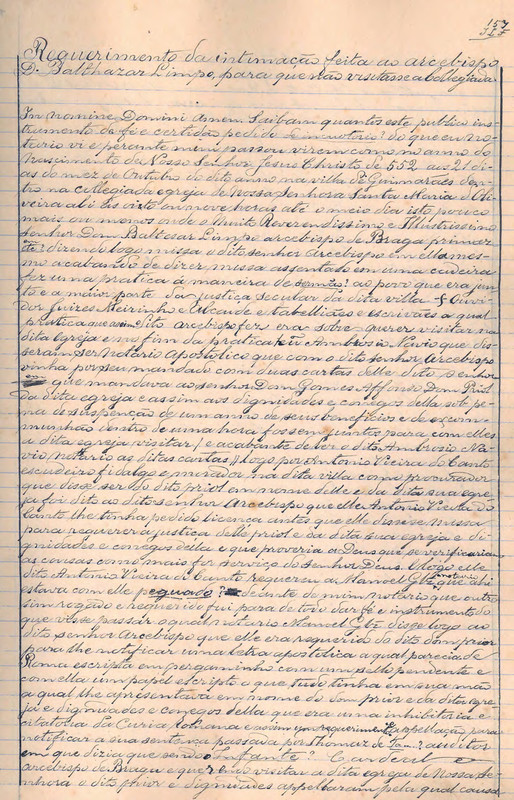 157
Requerimento da intimação feita ao arcebispo
D. Balthazar Limpo, para que não visitasse a collegiada.
In nomine Domini Amen. Saibam quantos este publico ins-
trumento de fé e certidão pedido virem como no anno do
Nascimento de Nosso Senhor Jesus Christo de 552 aos 21 di-
as do mez de Outubro do dito anno na villa de Guimarães den-
tro na collegiada egreja de Nossa Senhora Santa Maria d'Oli-
veira ás oito ou nove horas até o meio dia isto pouco
mais ou menos onde o Muito Reverendissimo e Illustrissimo
Senhor Dom Baltesar Limpo arcebispo de Braga primaz
dizendo logo missa o dito senhor Arcebispo em ella mes-
mo acabando de dizer missa assentado em uma cadeira
fez uma pratica á maneira de sermão? ao povo que era jun-
to e a maior parte da justiça secular da dita villa Ouvi-
dor Juizes Meirinho e Alcaide e tabelliães e escrivães a qual
pratica que assim dito arcebispo fez era sobre querer visitar na
dita egreja e no fim da pratica Ambrosio Navio que dis-
seram ser Notario Apostolico que com o dito senhor Arcebispo
vinha por seu mandado com duas cartas delle dito senhor
que mandava ao senhor Dom Gomes Affonso Dom Priol
da dita egreja e assim aos dignidades e conegos della sob pe-
na de suspenção de um anno de seus beneficios e de excom-
munhão dentro de uma hora fossem juntos para com elles
a dita egreja visitar / e acabante de ler o dito Ambrosio Na-
vio notario as ditas cartas // Logo por Antonio Vieira do Canto
escudeiro fidalgo e morador na dita villa como procurador
que disse ser do dito priol em nome delle e da dita sua egre-
ja foi dito ao dito senhor Arcebispo que elle Antonio Vieira do
Canto lhe tinha pedido licença antes que elle disesse missa
para requerer a justiça delle priol e da dita sua egreja e di-
gnidades e conegos della e que proveria a Deus que se verificariam
as cousas como mais for serviço do Senhor Deus. E logo elle
dito Antonio Vieira do Canto requereu a Manoel Glz que ahi
estava com elle pequado? deante de mim notario que outro
sim rogado e requerido fui para de todo dar fé e instrumento do
que visse passar o qual notario Manoel Glz disse logo ao
dito senhor Arcebispo que elle era requerido do dito dom prior
para lhe notificar uma letra apostolica a qual parecia de
Roma escripta em pergaminho com um sello pendente e
com ella um papel escripto o que tudo tinha em sua mão
a qual lhe apresentava em nome do dom prior e da dita egre-
ja e dignidades e conegos della que era uma inhibitoria e
citatoria da Curia Romana e assim um requerimento e appellação para
notificar a sua sentença passada por Thomaz de auditor
em que dizia que sendo o infante? Cardeal
arcebispo de Braga e querendo visitar a dita egreja de Nossa Se-
nhora o dito prior e dignidades appellaram pela qual causa